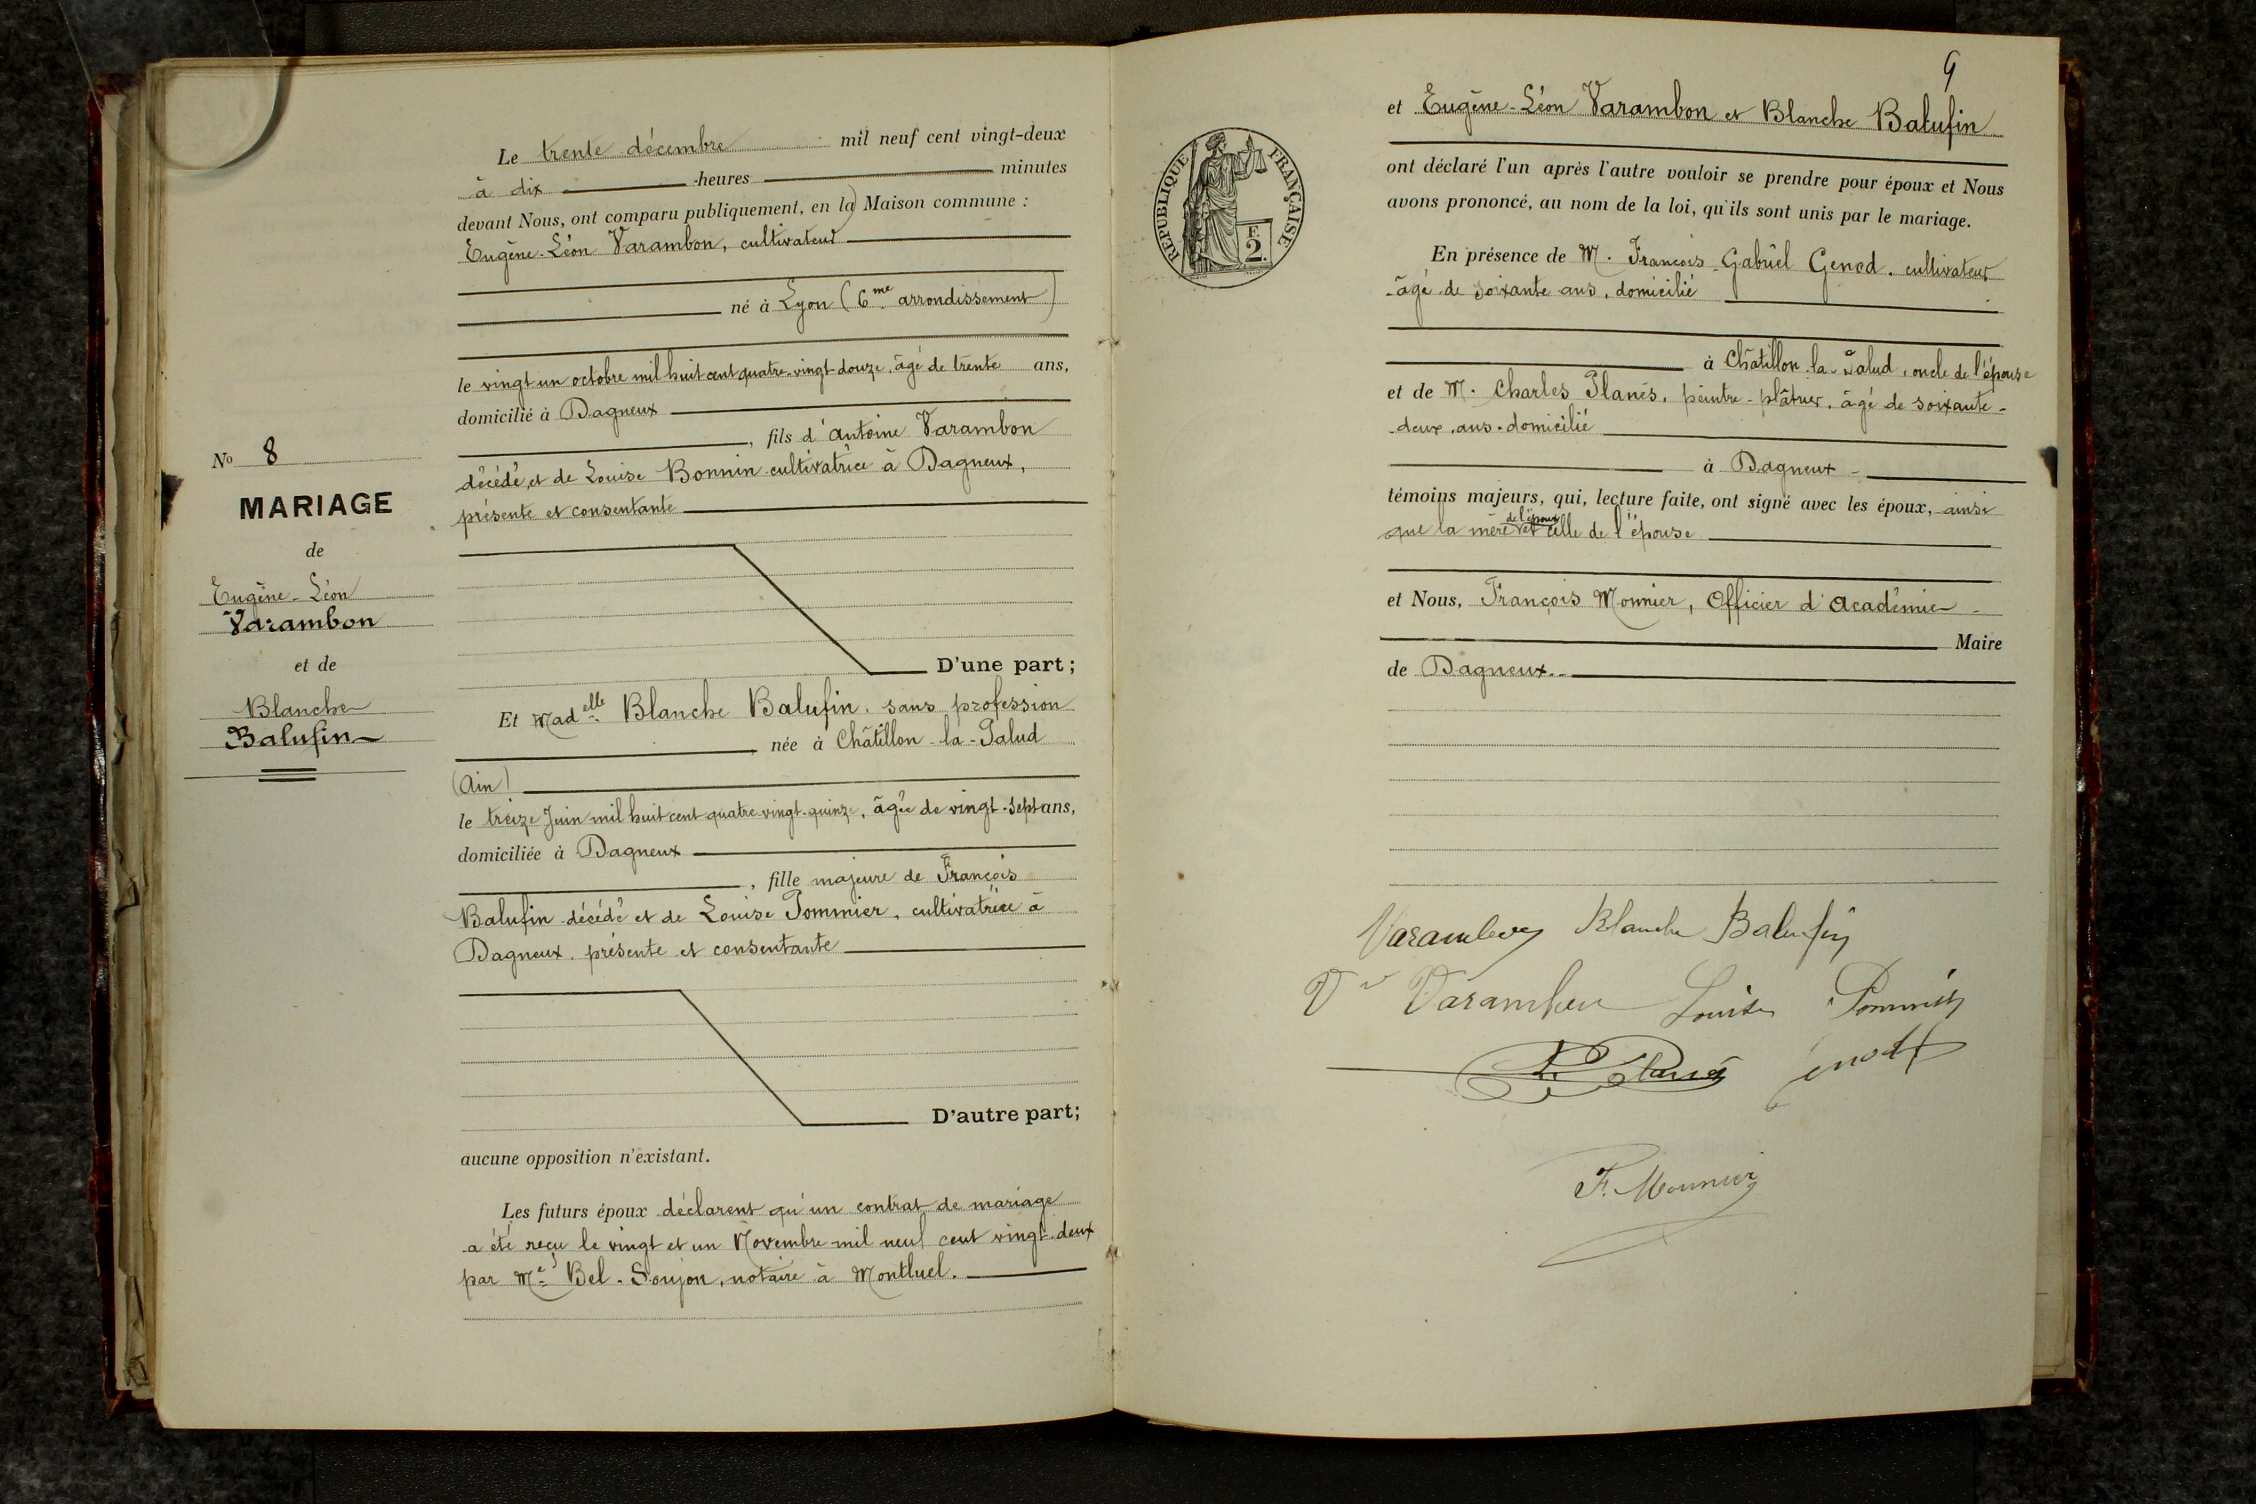 Le trente décembre mil neuf cent vingt-deux
à dix heures minutes
devant Nous, ont comparu publiquement, en la Maison commune :
Eugène-Léon Varambon, cultivateur
né à Lyon (6me arrondissement)
le vingt un octobre mil huit cent quatre-vingt-douze, âgé de trente ans,
domicilié à Dagneux
, fils d'Antoine Varambon
décédé, et de Louise Bonnin cultivatrice à Dagneux,
présente et consentante
D'une part ;
No 8
MARIAGE
de
Eugène-Léon
Varambon
et de
Blanche
Balufin
Et Madelle Blanche Balufin, sans profession
née à Châtillon-la-Palud
(Ain)
le treize Juin mil huit cent quatre-vingt-quinze, âgée de vingt-sept ans,
domiciliée à Dagneux
, fille majeure de François
Balufin décédé et de Louise Pommier, cultivatrice à
Dagneux, présente et consentante
D'autre part ;
aucune opposition n'existant.
Les futurs époux déclarent qu'un contrat de mariage
a été reçu le vingt et un Novembre mil neuf cent vingt-deux
par Me Bel-Soujon, notaire à Montluel.
9
REPUBLIQUE FRANÇAISE
F.
2.
et Eugène-Léon Varambon et Blanche Balufin
ont déclaré l'un après l'autre vouloir se prendre pour époux et Nous
avons prononcé, au nom de la loi, qu'ils sont unis par le mariage.
En présence de M. François-Gabriel Genod, cultivateur
âgé de soixante ans, domicilié
à Châtillon-la-Palud, oncle de l'épouse
et de M. Charles Planès, peintre-plâtrier, âgé de soixante-
deux ans, domicilié
à Dagneux
témoins majeurs, qui, lecture faite, ont signé avec les époux, ainsi
de l'époux
que la mère et celle de l'épouse
et Nous, François Monnier, Officier d'Académie
Maire
de Dagneux.
Varambon Blanche Balufin
Ve Varambon Louise Pommier
Planès Genod
F. Monnier